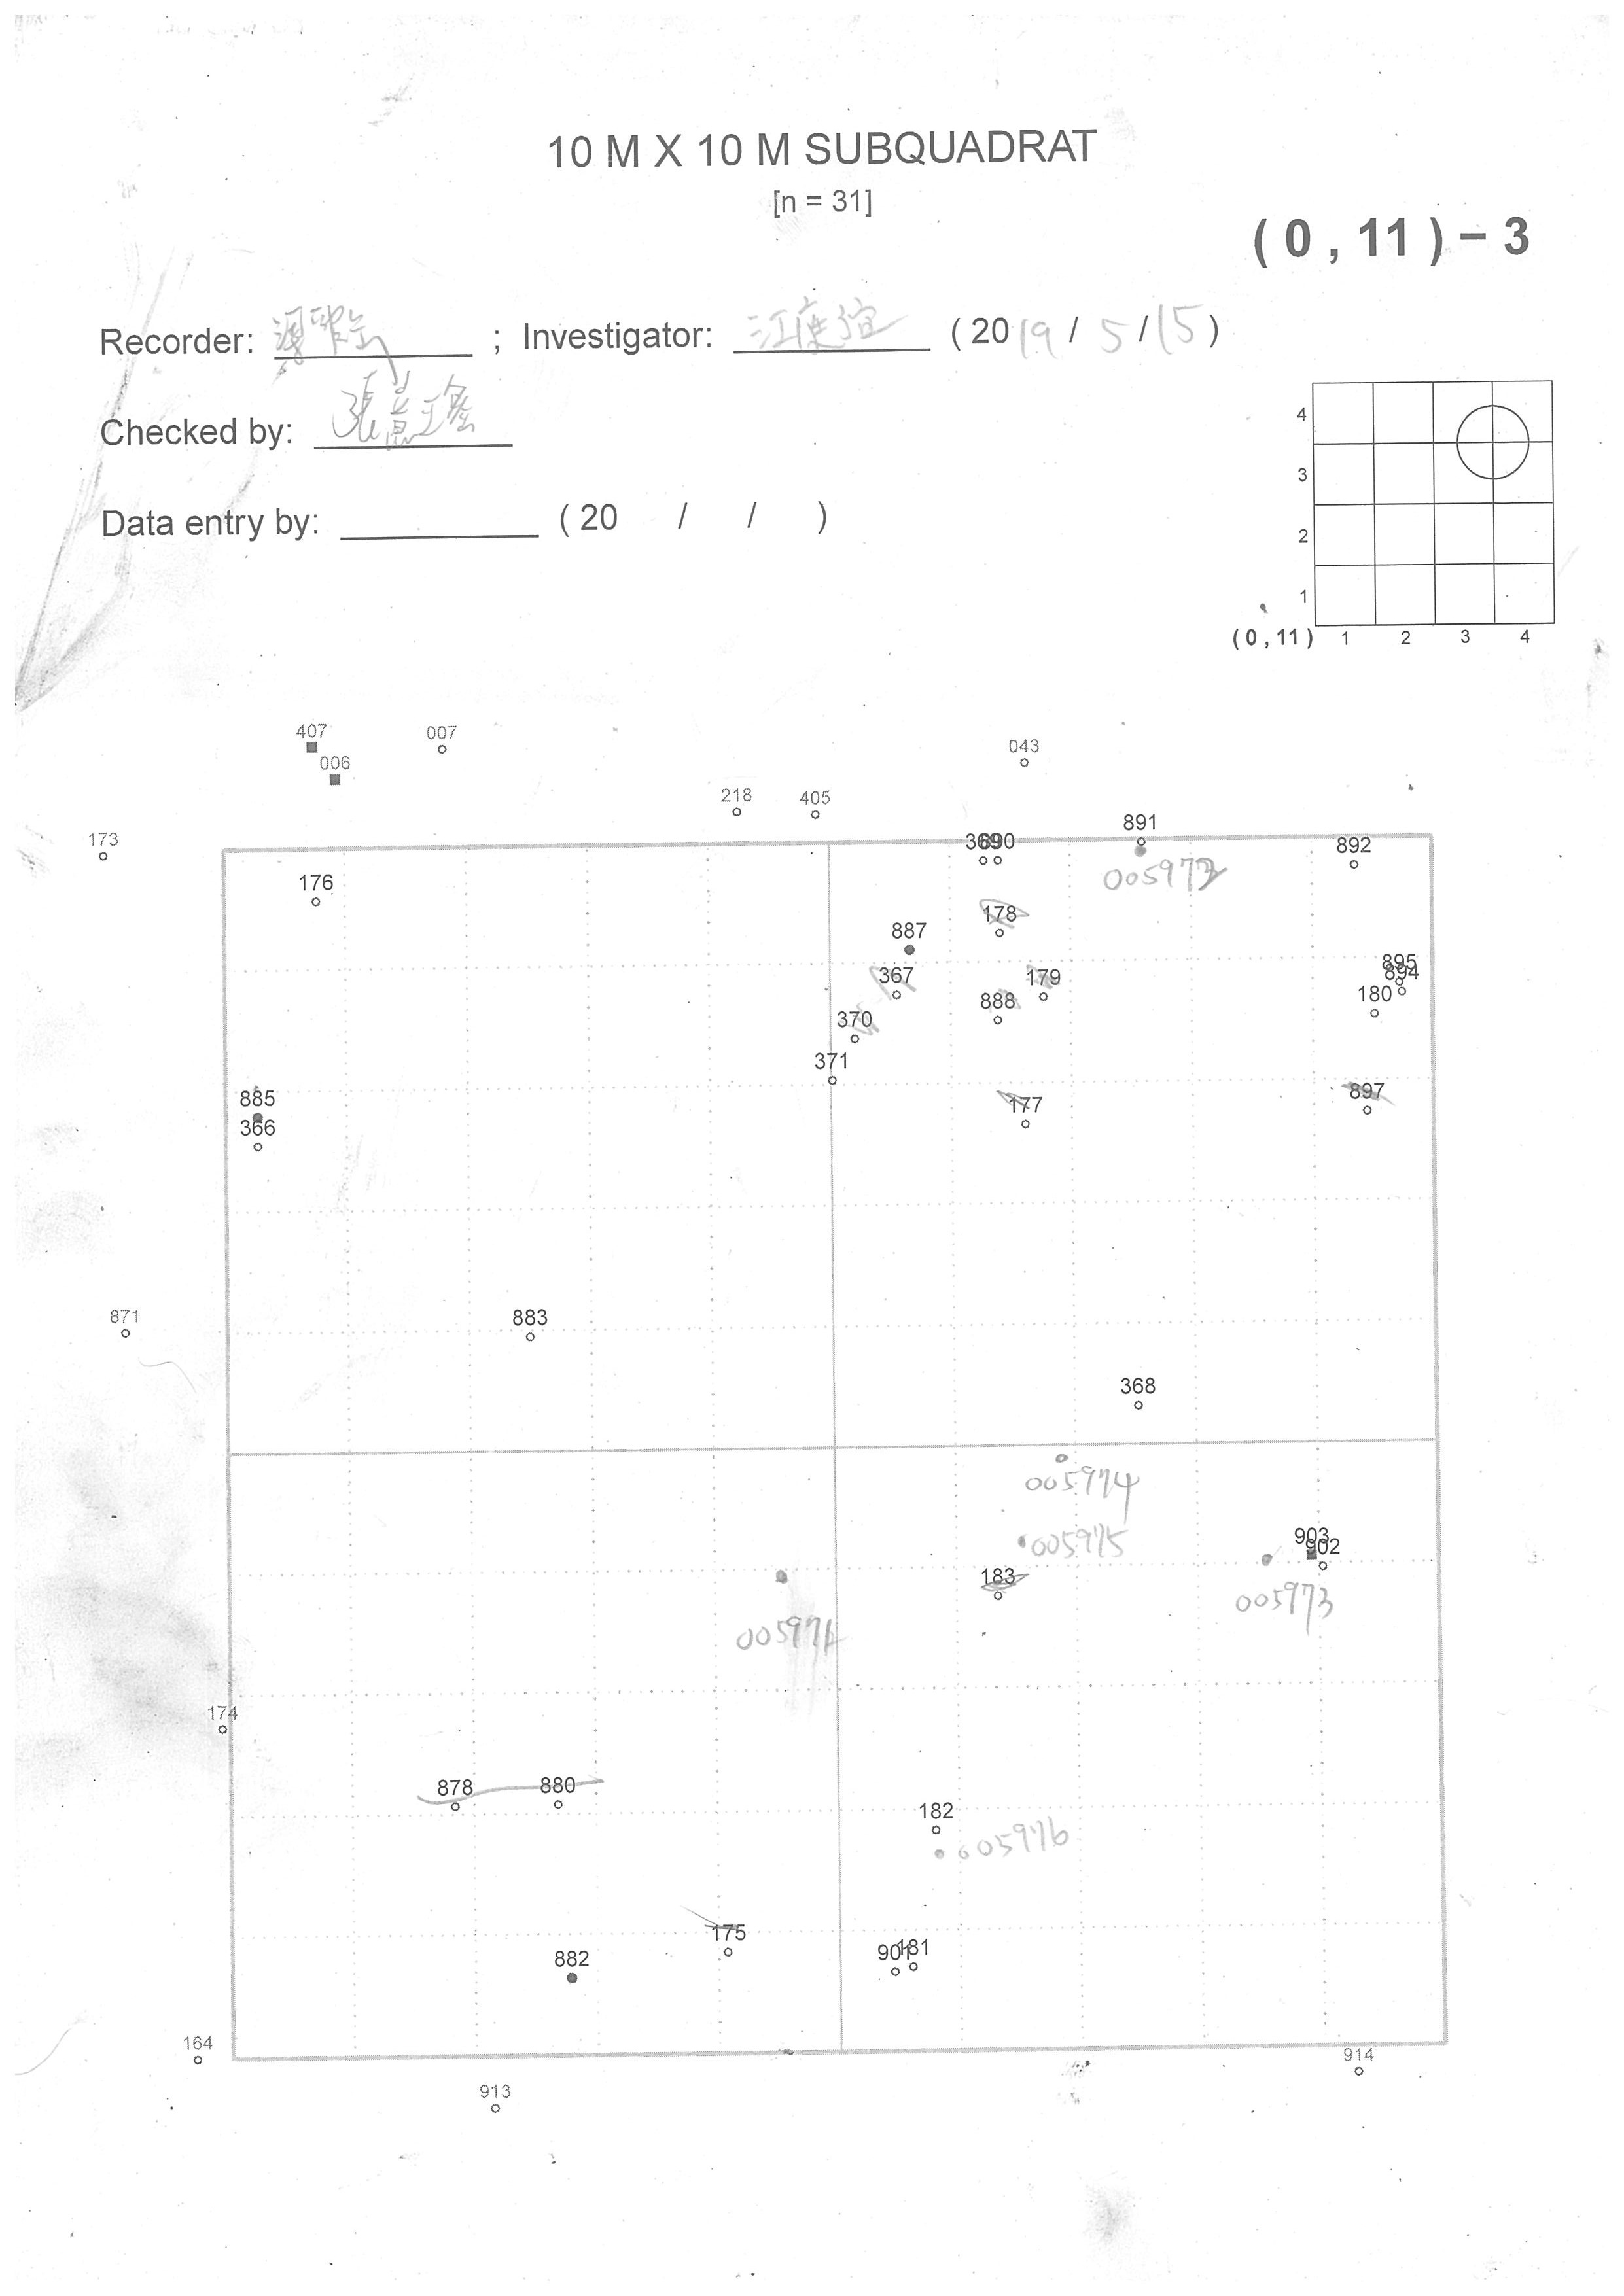 10 M X 10 M SUBQUADRAT
[n = 31]
( 0 , 11 ) – 3
Recorder: ; Investigator: 江庭誼 ( 20 19 / 5 / 15 )
Checked by:
Data entry by: ( 20 / / )
4
3
2
1
( 0 , 11 ) 1 2 3 4
407
007
006
043
218
405
173
891
369
890
892
005972
176
178
887
895
894
367
179
180
888
370
371
885
177
897
366
871
883
368
005974
005975
903
902
183
005973
005971
174
878
880
182
005976
175
901
181
882
164
914
913